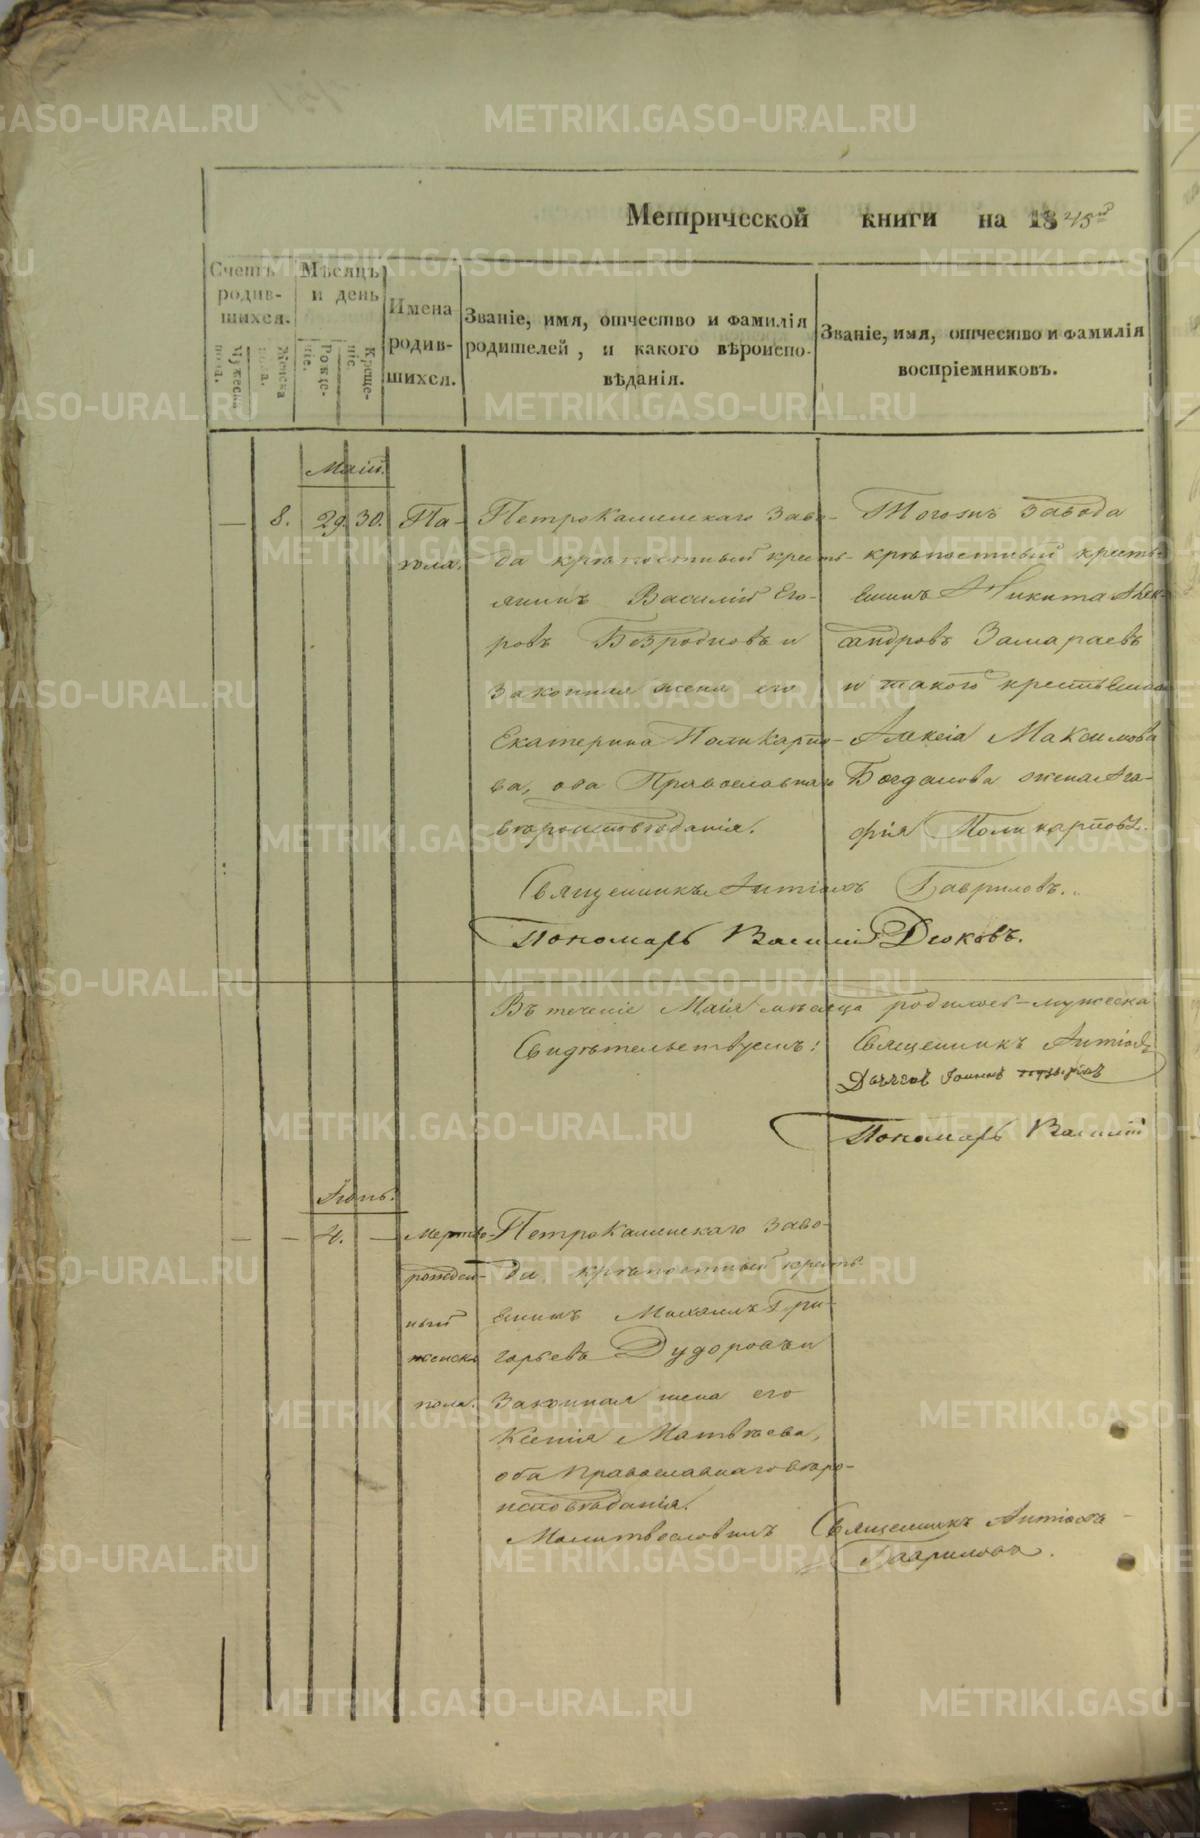 Метрической книги на 1845й
Счетъ родив- шихся.
Мужеска пола.
Женска пола.
Мѣсяцъ и день
Рожде- ніе.
Креще- ніе
Имена родив- шихся.
Званіе, имя, отчество и фамилія
родителей, и какого вѣроиспо-
вѣданія.
Званіе, имя, отчество и фамилія
воспріемниковъ.
Маій.
— 8. 29. 30.
Петрокаменскаго Заво-
да крѣпостный кресть-
янинъ Василій Его-
ровъ Безродновъ и
законная жена его
Екатерина Поликарпо-
ва, оба Православнаго
вѣроисповѣданія.
Тогожъ завода
крѣпостный кресть-
енинъ Никита Алек-
сандровъ Замараевъ
и такого крестьенина
Алексія Максимова
Богданова жена Ага-
фія Поликарпова.
Священникъ Антіохъ Гавриловъ.
Пономарь Василій Дюковъ.
Въ теченіе Маія мѣсяца родилось мужеска
Свидѣтельствуемъ: Священникъ Антіохъ
Пономарь Василій
Іюнь.
— — 4. —
Мертво-
рожден-
ный
женска
пола.
Петрокаменскаго Заво-
да крѣпостный кресть-
енинъ Михаилъ Гри-
горьевъ Дудоровъ и
Законная жена его
Ксенія Матвѣева,
оба Православнаго вѣро-
исповѣданія.
Молитвословилъ Священникъ Антіохъ
Гавриловъ.
METRIKI.GASO-URAL.RU